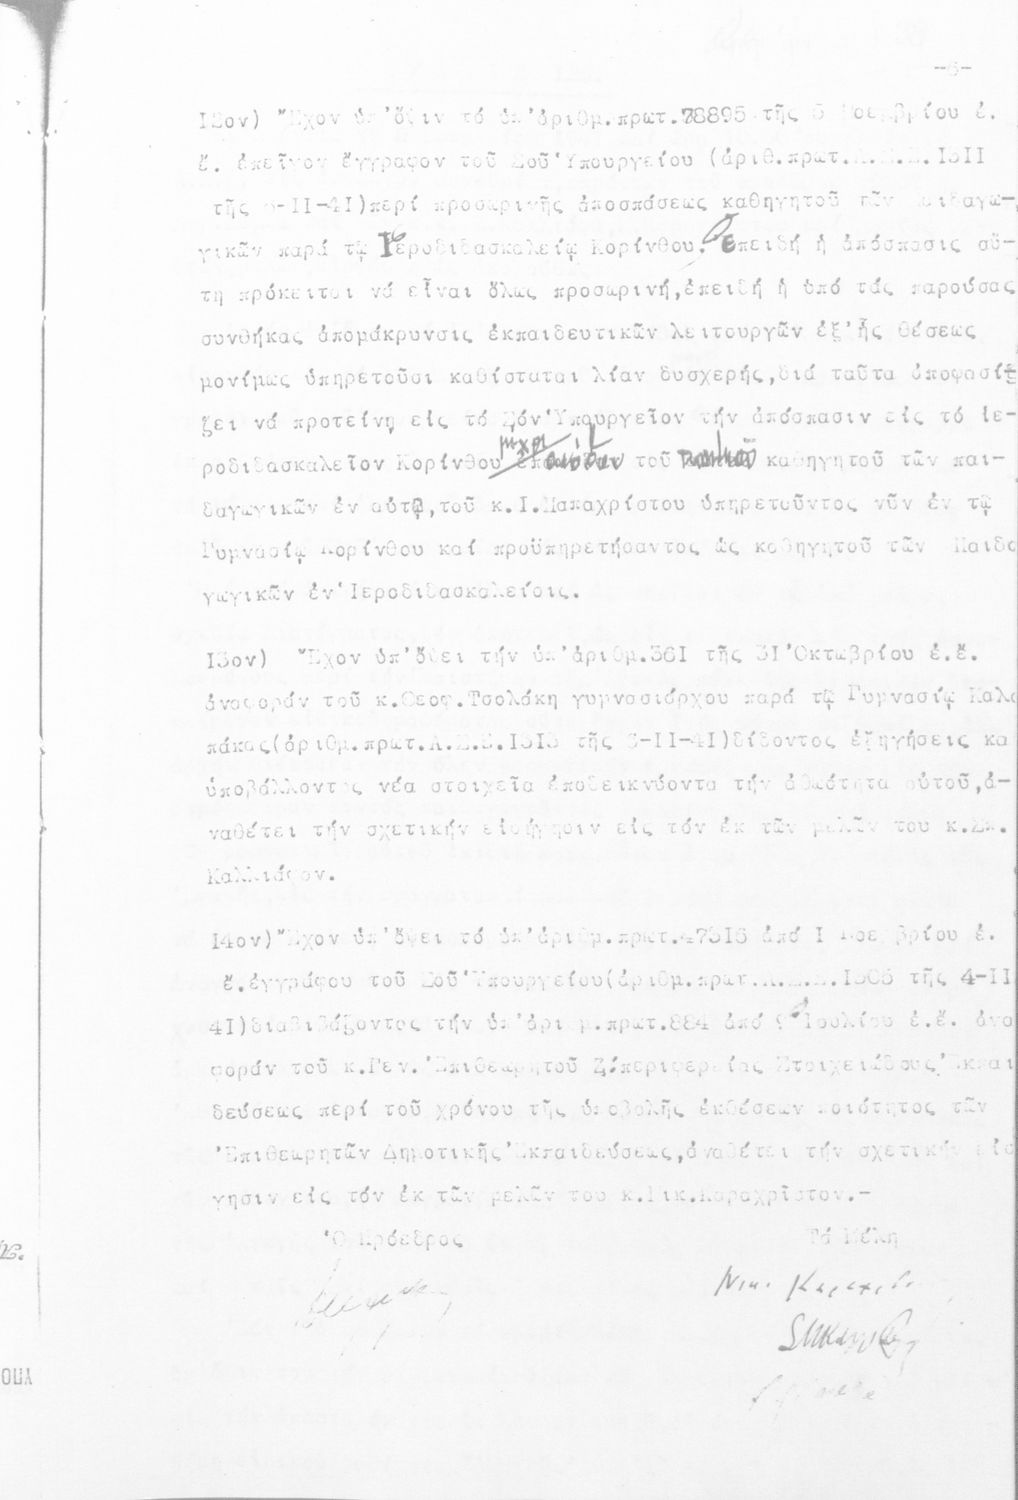 -6-
12ον) Ἔχον ὑπ'ὄψιν τό ὑπ'ἀριθμ.πρωτ.78895 τῆς 5 Νοεμβρίου ἐ.
ἔ. ἐπεῖγον ἔγγραφον τοῦ Σοῦ Ὑπουργείου (ἀριθ.πρωτ.Α.Σ.Ε.1311
τῆς -11-41)περί προσωρινῆς ἀποσπάσεως καθηγητοῦ τῶν παιδαγω-
γικῶν παρά τῷ Ἱεροδιδασκαλείῳ Κορίνθου. Ἐπειδή ἡ ἀπόσπασις αὕ-
τη πρόκειται νά εἶναι ὅλως προσωρινή,ἐπειδή ἡ ὑπό τάς παρούσας
συνθήκας ἀπομάκρυνσις ἐκπαιδευτικῶν λειτουργῶν ἐξ'ἧς θέσεως
μονίμως ὑπηρετοῦσι καθίσταται λίαν δυσχερής,διά ταῦτα ἀποφασίζ
ζει νά προτείνῃ εἰς τό Σόν Ὑπουργεῖον τήν ἀπόσπασιν εἰς τό ἱε-
ροδιδασκαλεῖον Κορίνθου μέχρι τοῦ καθηγητοῦ τῶν παι-
δαγωγικῶν ἐν αὐτῷ,τοῦ κ.Ι.Παπαχρίστου ὑπηρετοῦντος νῦν ἐν τῷ
Γυμνασίῳ Κορίνθου καί προϋπηρετήσαντος ὡς καθηγητοῦ τῶν Παιδα
γωγικῶν ἐν Ἱεροδιδασκαλείοις.
13ον) Ἔχον ὑπ'ὄψει τήν ὑπ'ἀριθμ.361 τῆς 31 Ὀκτωβρίου ἐ.ἔ.
ἀναφοράν τοῦ κ.Θεοφ.Τσολάκη γυμνασιάρχου παρά τῷ Γυμνασίῳ Καλα
πάκας(ἀριθμ.πρωτ.Α.Σ.Ε.1313 τῆς 6-11-41)δίδοντος ἐξηγήσεις κα
ὑποβάλλοντος νέα στοιχεῖα ἀποδεικνύοντα τήν ἀθωότητα αὐτοῦ,ἀ-
ναθέτει τήν σχετικήν εἰσήγησιν εἰς τόν ἐκ τῶν μελῶν του κ.Σπ.
Καλλιάφαν.
14ον) Ἔχον ὑπ'ὄψει τό ὑπ'ἀριθμ.πρωτ.47316 ἀπό 1 Νοεμβρίου ἐ.
ἔ.ἐγγράφου τοῦ Σοῦ Ὑπουργείου(ἀριθμ.πρωτ.Α.Σ.Ε.1303 τῆς 4-11
41)διαβιβάζοντος τήν ὑπ'ἀριθμ.πρωτ.884 ἀπό 9 Ἰουλίου ἐ.ἔ. ἀνα
φοράν τοῦ κ.Γεν.Ἐπιθεωρητοῦ Ζ'.περιφερείας Στοιχειώδους Ἐκπαι
δεύσεως περί τοῦ χρόνου τῆς ὑποβολῆς ἐκθέσεων ποιότητος τῶν
Ἐπιθεωρητῶν Δημοτικῆς Ἐκπαιδεύσεως,ἀναθέτει τήν σχετικήν εἰσ
γησιν εἰς τόν ἐκ τῶν μελῶν του κ.Νικ.Καραχρῖστον.-
Ὁ Πρόεδρος Τά Μέλη
Νικ. Καραχρ
ΥΠΟ